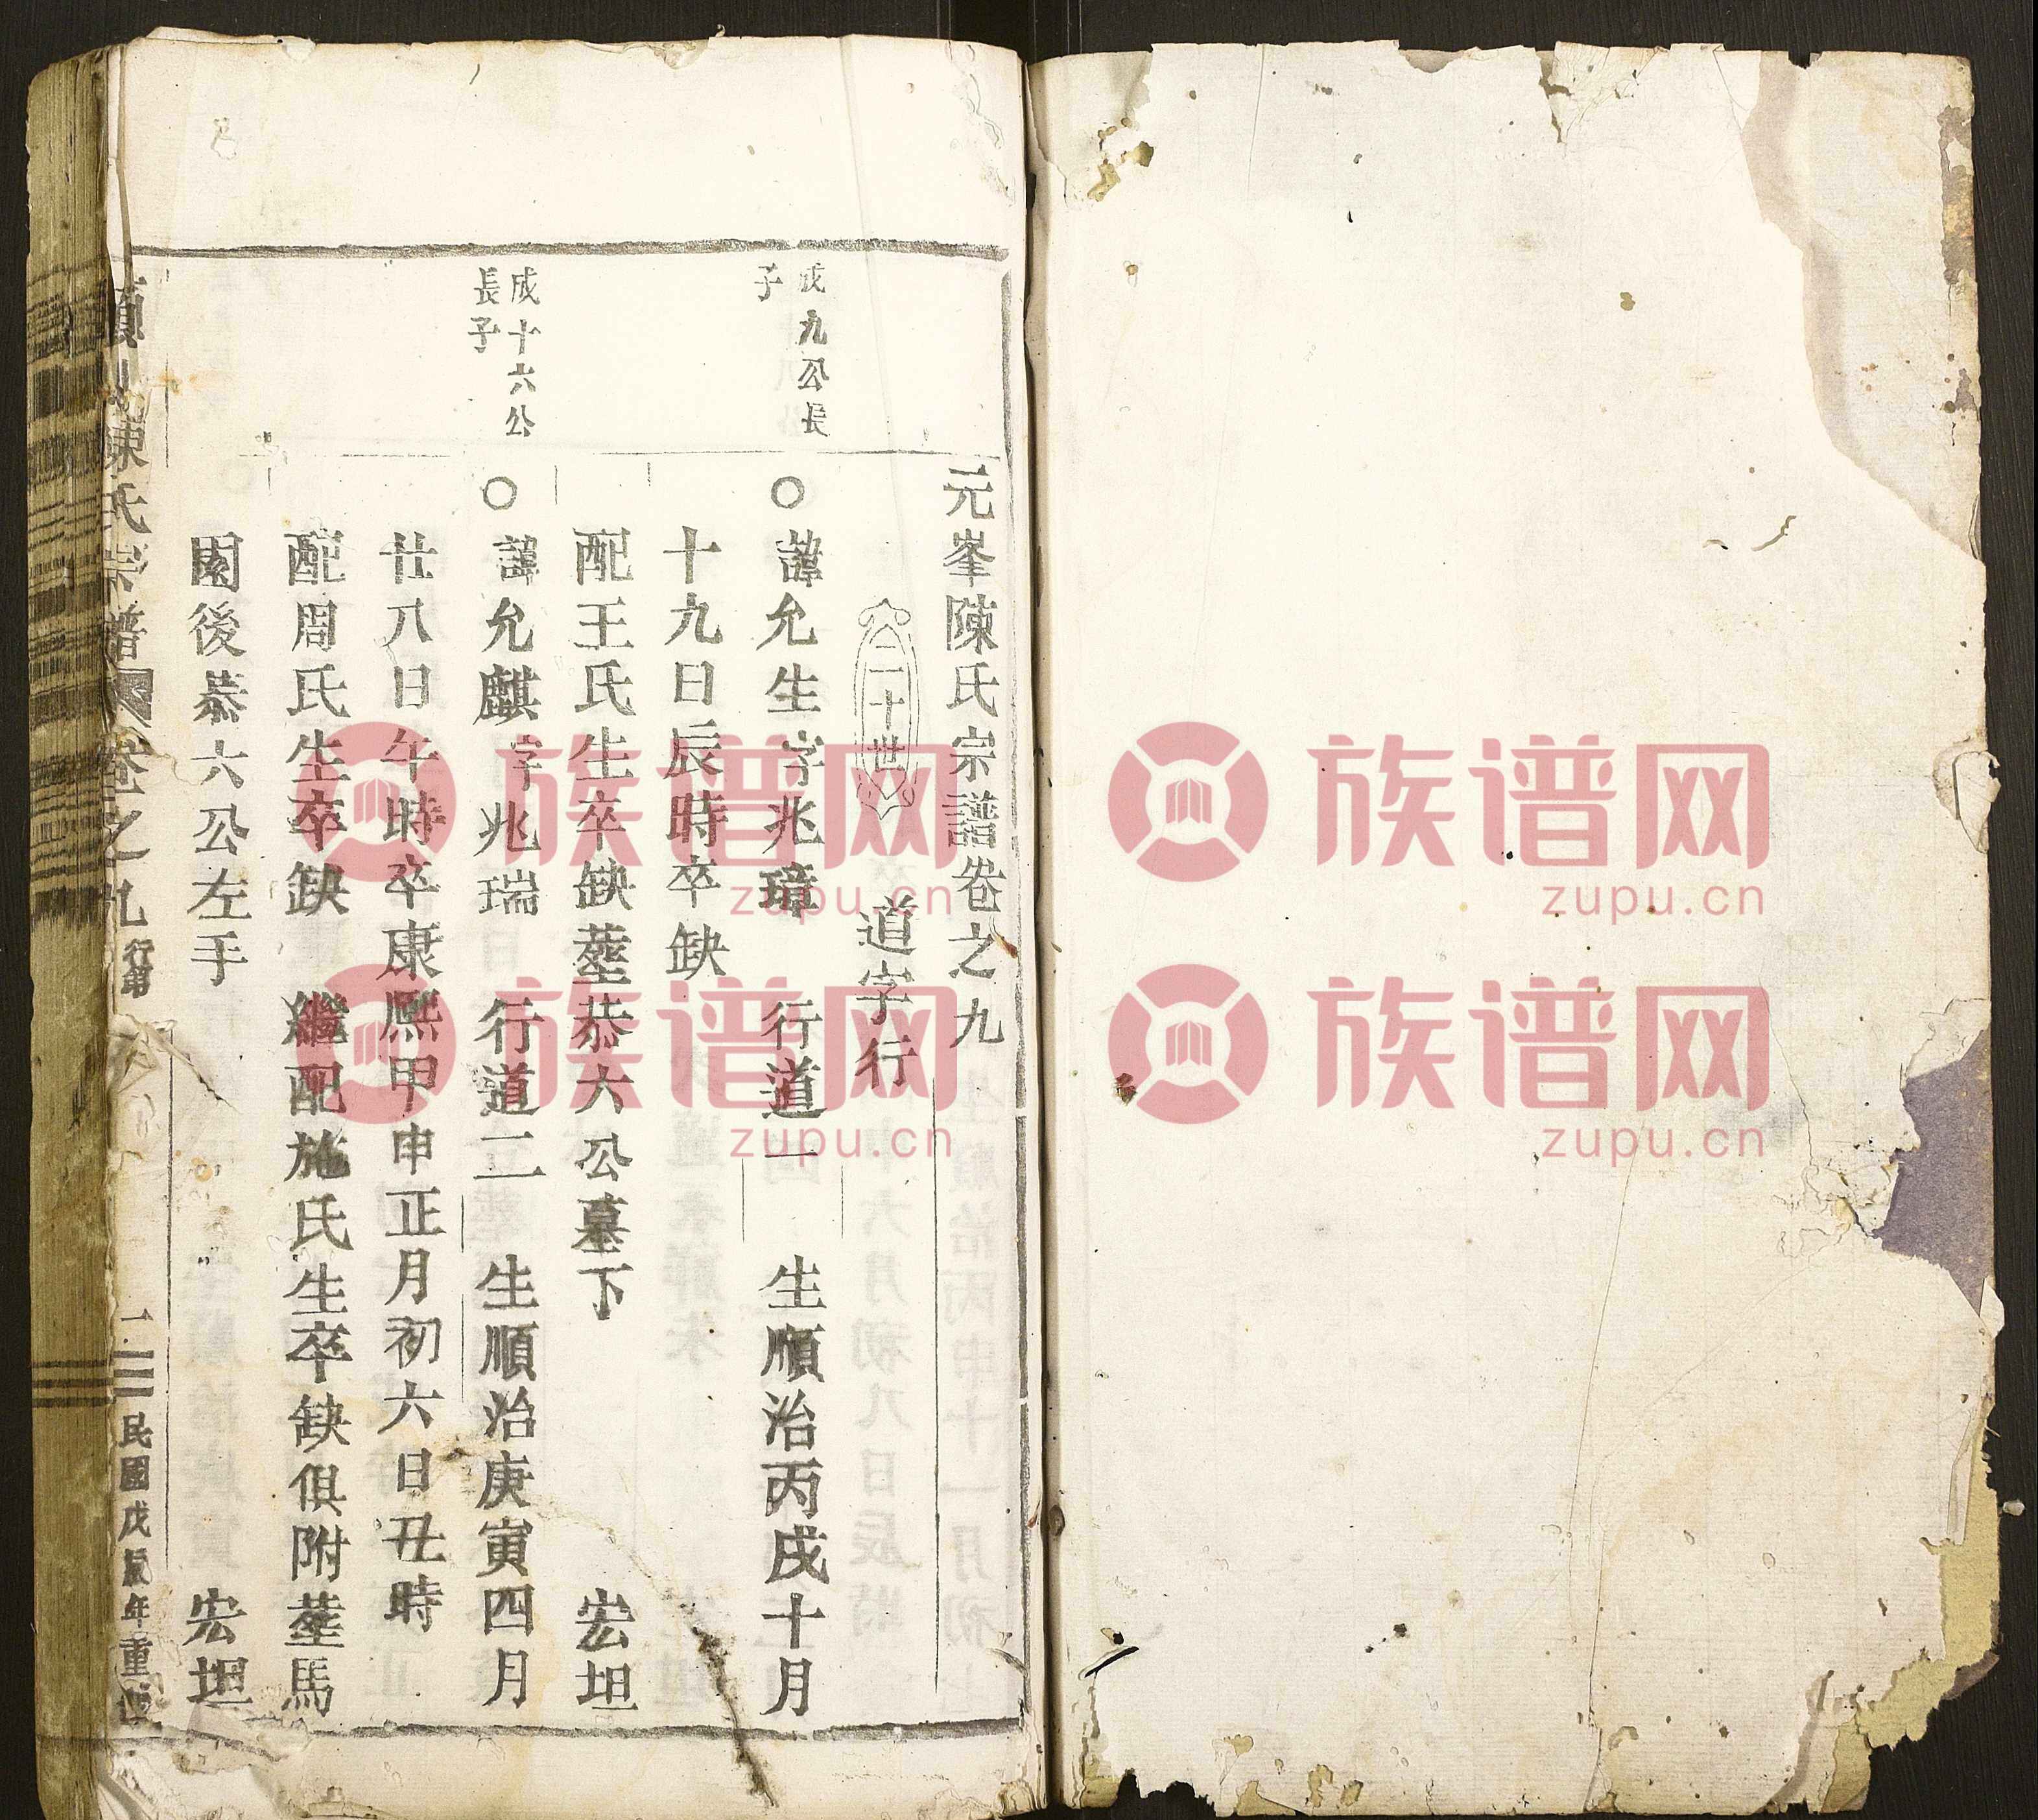 元峯陳氏宗譜卷之九
二十世
道字行
成九公長
子
○諱允生字兆璋 行道一 生順治丙戌十月
十九日辰時卒缺
配王氏生卒缺塟恭六公墓下 宏坦
成十六公
長子
○諱允麒字兆瑞 行道二 生順治庚寅四月
廿八日午時卒康熙甲申正月初六日丑時
配周氏生卒缺 繼配施氏生卒缺俱附塟馬
園後恭六公左手 宏坦
陳氏宗譜 卷之九 行第 一 民國戊辰年重
族谱网
zupu.cn
族谱网
zupu.cn
族谱网
zupu.cn
族谱网
zupu.cn